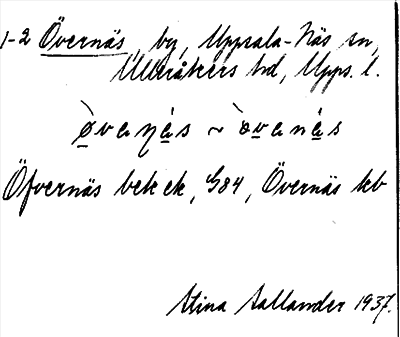 1-2 Övernäs, by, Uppsala-Näs sn,
Ulleråkers hd, Upps. l.
òvanás ~ òvanás
Öfvernäs bek ek, G84, Övernäs kb
Stina Aallander 1937.